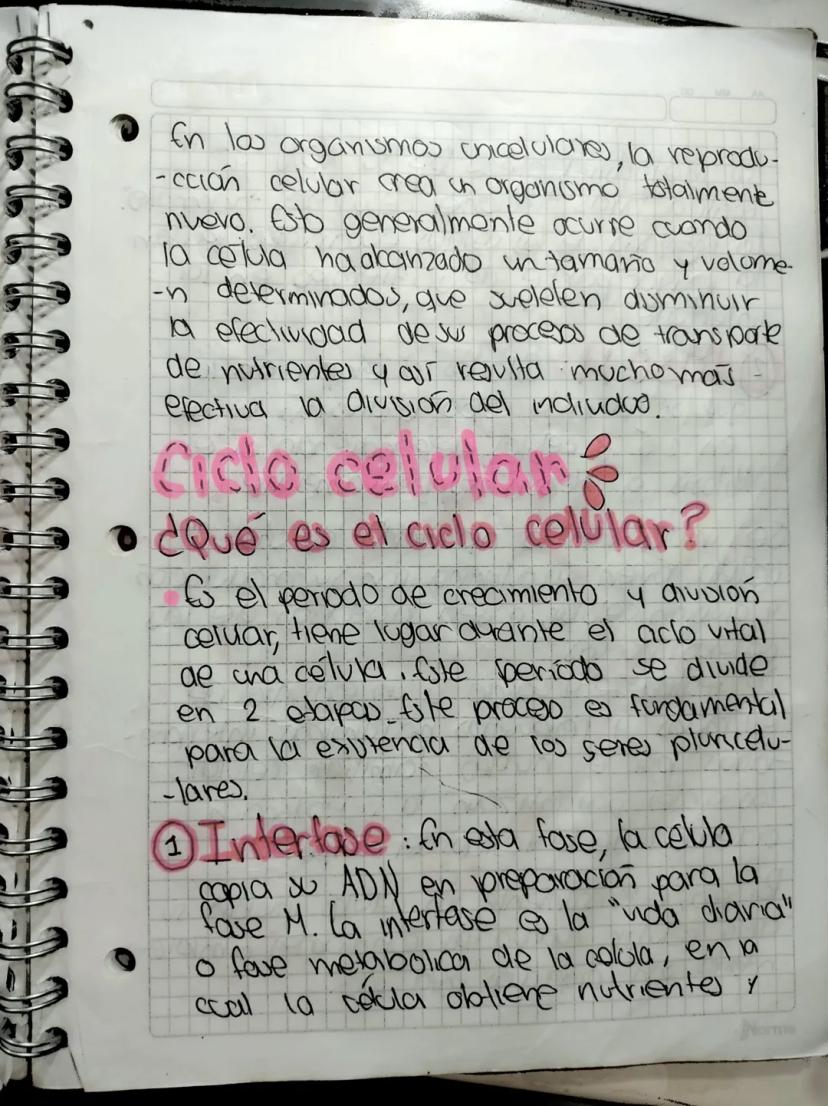 En los organismos unicelulares, la reprodu-
-cción celular crea un organismo totalmente
nuevo. Esto generalmente ocurre cuando
la célula ha alcanzado un tamaño y volume-
-n determinados, que suelelen disminuir
la efectividad de sus procesos de transporte
de nutrientes y así resulta mucho más
efectiva la división del individuo.
Ciclo celular
¿Qué es el ciclo celular?
• Es el periodo de crecimiento y división
celuar, tiene lugar durante el ciclo vital
de una célula. Este período se divide
en 2 etapas. Este proceso es fundamental
para la existencia de los seres pluricelu-
-lares.
1 Interfase: En esta fase, la celula
copia su ADN en preparación para la
fase M. La interfase es la "vida diaria"
o fase metabolica de la celula, en la
cual la célula obtiene nutrientes y
Norma